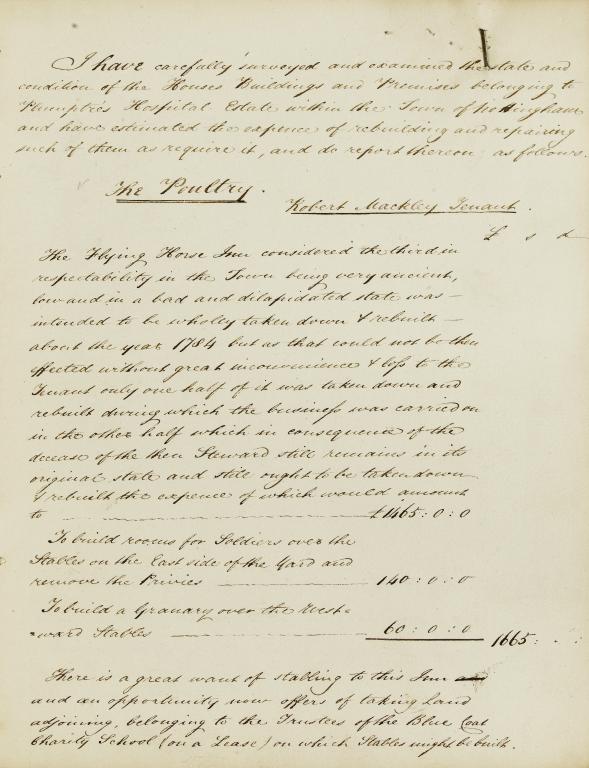 I have carefully surveyed and examined the state and
condition of the Houses Buildings and Premises belonging to
Plumptre's Hospital Estate within the Town of Nottingham
and have estimated the expence of rebuilding and repairing
such of them as require it, and do report thereon as follows.
The Poultry.
Robert Mackley Tenant.
£ s d
The Flying Horse Inn considered the third in
respectability in the Town being very ancient,
low and in a bad and dilapidated state was –
intended to be wholey taken down & rebuilt –
about the year 1784 but as that could not be then
effected without great inconvenience & loss to the
Tenant only one half of it was taken down and
rebuilt during which the business was carried on
in the other half which in consequence of the
decease of the then Steward still remains in its
original state and still ought to be taken down
& rebuilt the expence of which would amount
to — £1465:0:0
To build rooms for Soldiers over the
Stables on the East side of the Yard and
remove the Privies — 140:0:0
To build a Granary over the West-
=ward Stables — 60:0:0 1665: . :
There is a great want of stabling to this Inn
and an opportunity now offers of taking Land
adjoining, belonging to the Trustees of the Blue Coat
Charity School (on a Lease) on which Stables might be built.